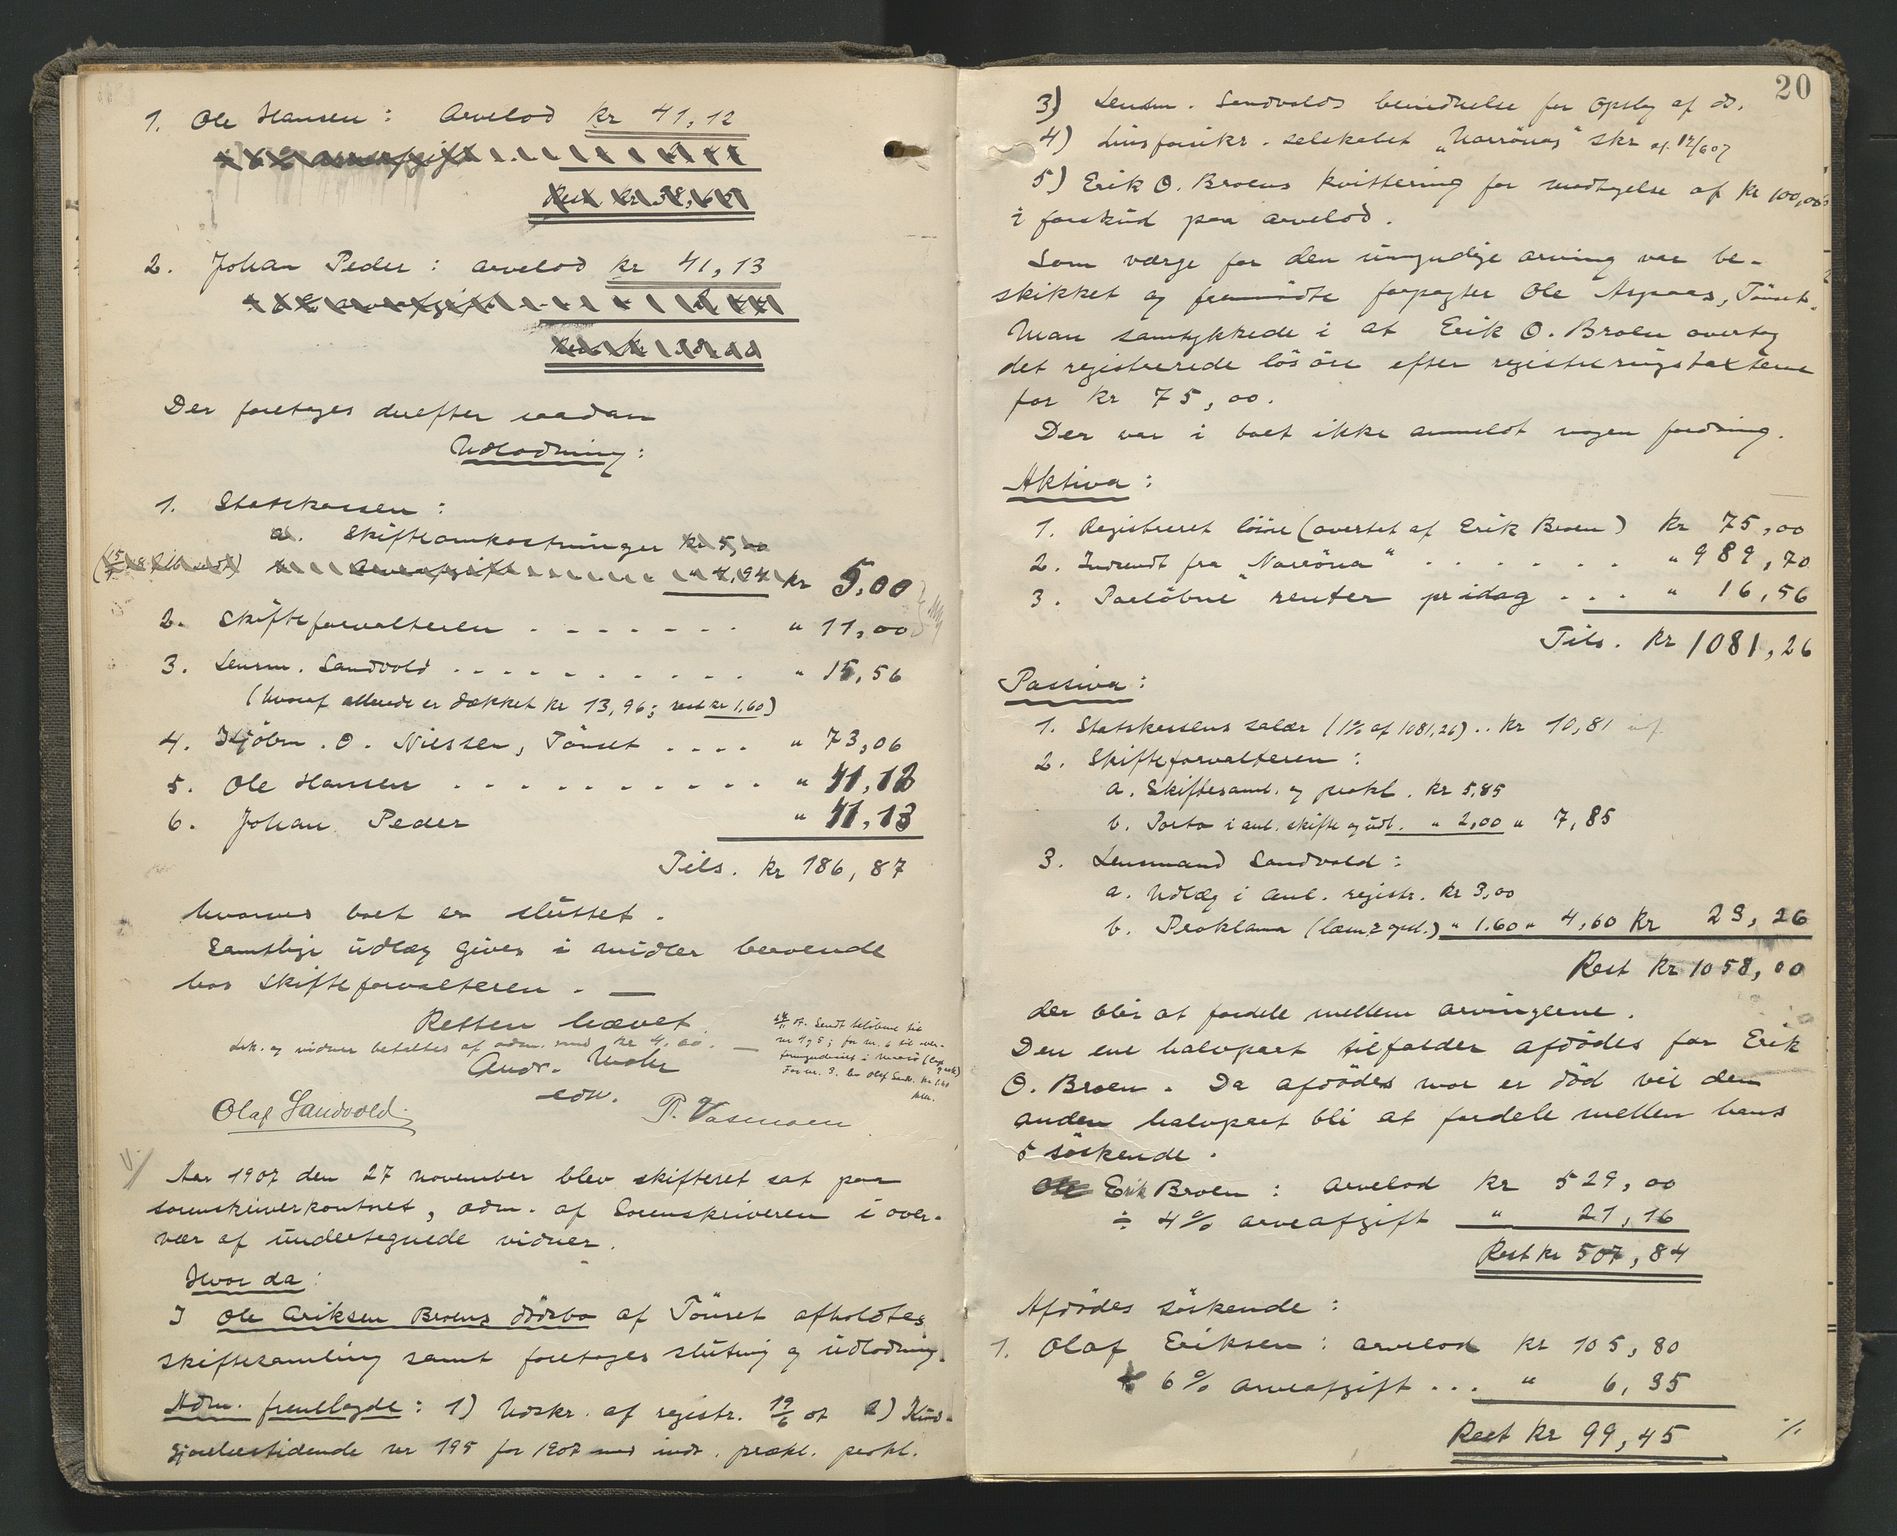 1. Ole Hansen : Arvelod kr 41,12
2. Johan Peder : arvelod kr 41,13
Der foretoges derefter saadan
Udlodning :
1. Statskassen :
a. Skifteomkostninger kr 5,00
kr 5,00
2. Skifteforvalteren . . . . . . . " 11,00
3. Lensm. Sandvold . . . . . . . . . . " 15,56
(hvoraf allerede er dækket kr 13,96; rest kr 1,60)
4. Kjøbm. O. Nilssen, Tönset . . . . " 73,06
5. Ole Hansen . . . . . . . . . . " 41,12
6. Johan Peder " 41,13
Tils. kr 186,87
hvorved boet er sluttet.
Samtlige udlæg gives i midler beroende
hos skifteforvalteren. —
Retten hævet.
Dek. og vidner betaltes af adm. med kr 4,00. —
Andr. Mohr
edv.
Olaf Sandvold. P. Vasmoen
Aar 1907 den 27 november blev skifteret sat paa
sorenskriverkontoret, adm. af Sorenskriveren i over-
vær af undertegnede vidner.
Hvor da :
I Ole Eriksen Broens dödsbo af Tönset afholdtes
skiftesamling samt foretoges slutning og udlodning.
Adm. fremlagde : 1) Udskr. af registr. 19/6 07 2) Kund-
gjörelsestidende nr 195 for 1907 med indr. prækl. prokl.
20
3) Lensm. Sandvolds bevidnelse for opslag af do.
4) Livsforsikr. selskabet „Norrönas" skr af 12/6 07
5) Erik O. Broens kvittering for modtagelse af kr 100,00
i forskud paa arvelod.
Som værge for den umyndige arving var be-
skikket og fremmödte forpagter Ole Aspaas, Tönset.
Man samtykkede i at Erik O. Broen overtog
det registrerede lösöre efter registreringstaxterne
for kr 75,00.
Der var i boet ikke anmeldt nogen fordring.
Aktiva :
1. Registreret lösöre (overtat af Erik Broen) kr 75,00
2. Indsendt fra „Norröna" . . . . . . " 989,70
3. Paalöbne renter pr idag . . . " 16,56
Tils. kr 1081,26
Passiva :
1. Statskassens salær (1% af 1081,26) .. kr 10,81
2. Skifteforvalteren :
a. Skiftesaml. og prokl. kr 5,85
b. Porto i anl. skifte og udl. " 2,00 " 7,85
3. Lensmand Sandvold :
a. Udlæg i anl. registr. kr 3,00
b. Proklama (læsn. & opsl.) " 1.60 " 4,60 kr 23,26
Rest kr 1058,00
der blir at fordele mellem arvingerne.
Den ene halvpart tilfalder afdödes far Erik
O. Broen. Da afdödes mor er död vil den
anden halvpart bli at fordele mellem hans
5 söskende.
Erik Broen : arvelod kr 529,00
÷ 4% arveafgift " 21,16
Rest kr 507,84
Afdödes söskende :
1. Olaf Eriksen : arvelod kr 105,80
÷ 6% arveafgift . . . " 6,35
Rest kr 99,45